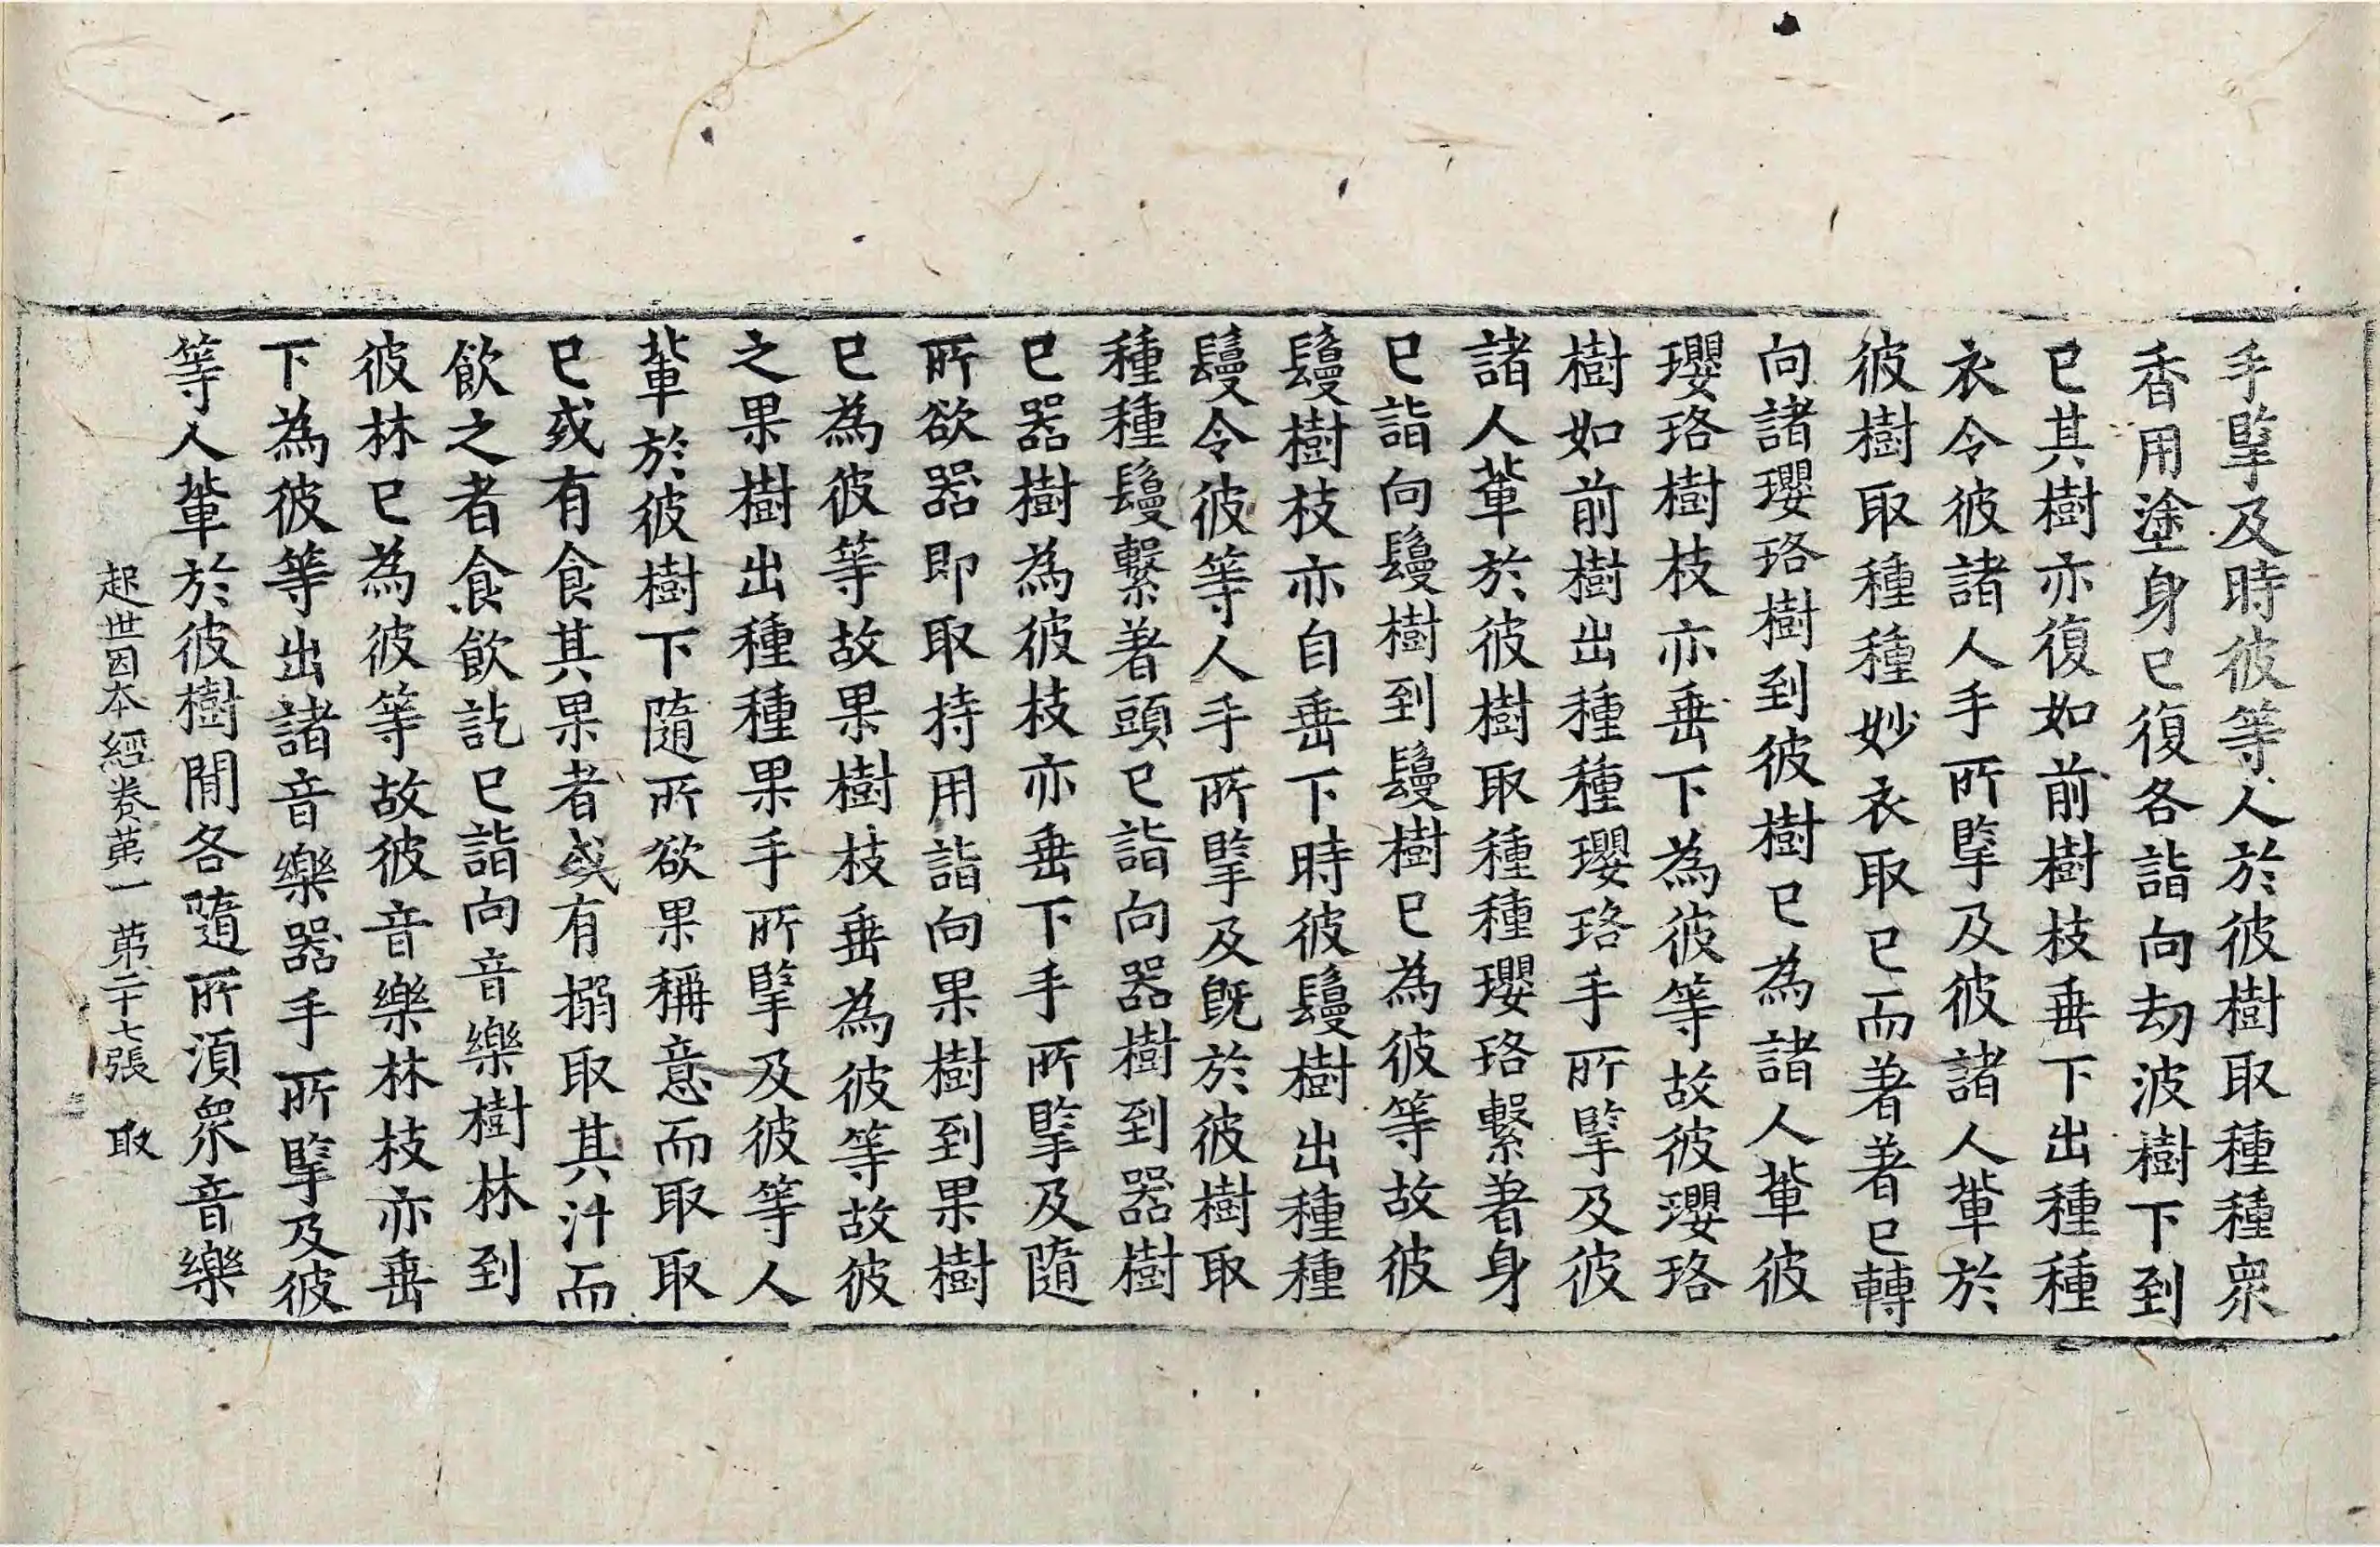 手擥及時彼等人於彼樹取種種衆
香用塗身已復各詣向劫波樹下到
已其樹亦復如前樹枝垂下出種種
衣令彼諸人手所擥及彼諸人軰於
彼樹取種種妙衣取已而著著已轉
向諸瓔珞樹到彼樹已為諸人軰彼
瓔珞樹枝亦垂下為彼等故彼瓔珞
樹如前樹出種種瓔珞手所擥及彼
諸人軰於彼樹取種種瓔珞繫著身
已詣向鬘樹到鬘樹已為彼等故彼
鬘樹枝亦自垂下時彼鬘樹出種種
鬘令彼等人手所擥及旣於彼樹取
種種鬘繫著頭已詣向器樹到器樹
已器樹為彼枝亦垂下手所擥及隨
所欲器即取持用詣向果樹到果樹
已為彼等故果樹枝垂為彼等故彼
之果樹出種種果手所擥及彼等人
軰於彼樹下隨所欲果稱意而取取
已或有食其果者或有搦取其汁而
飲之者食飲訖已詣向音樂樹林到
彼林已為彼等故彼音樂林枝亦垂
下為彼等出諸音樂器手所擥及彼
等人軰於彼樹閒各隨所湏衆音樂
起世因本經卷苐一 苐二十七張 取